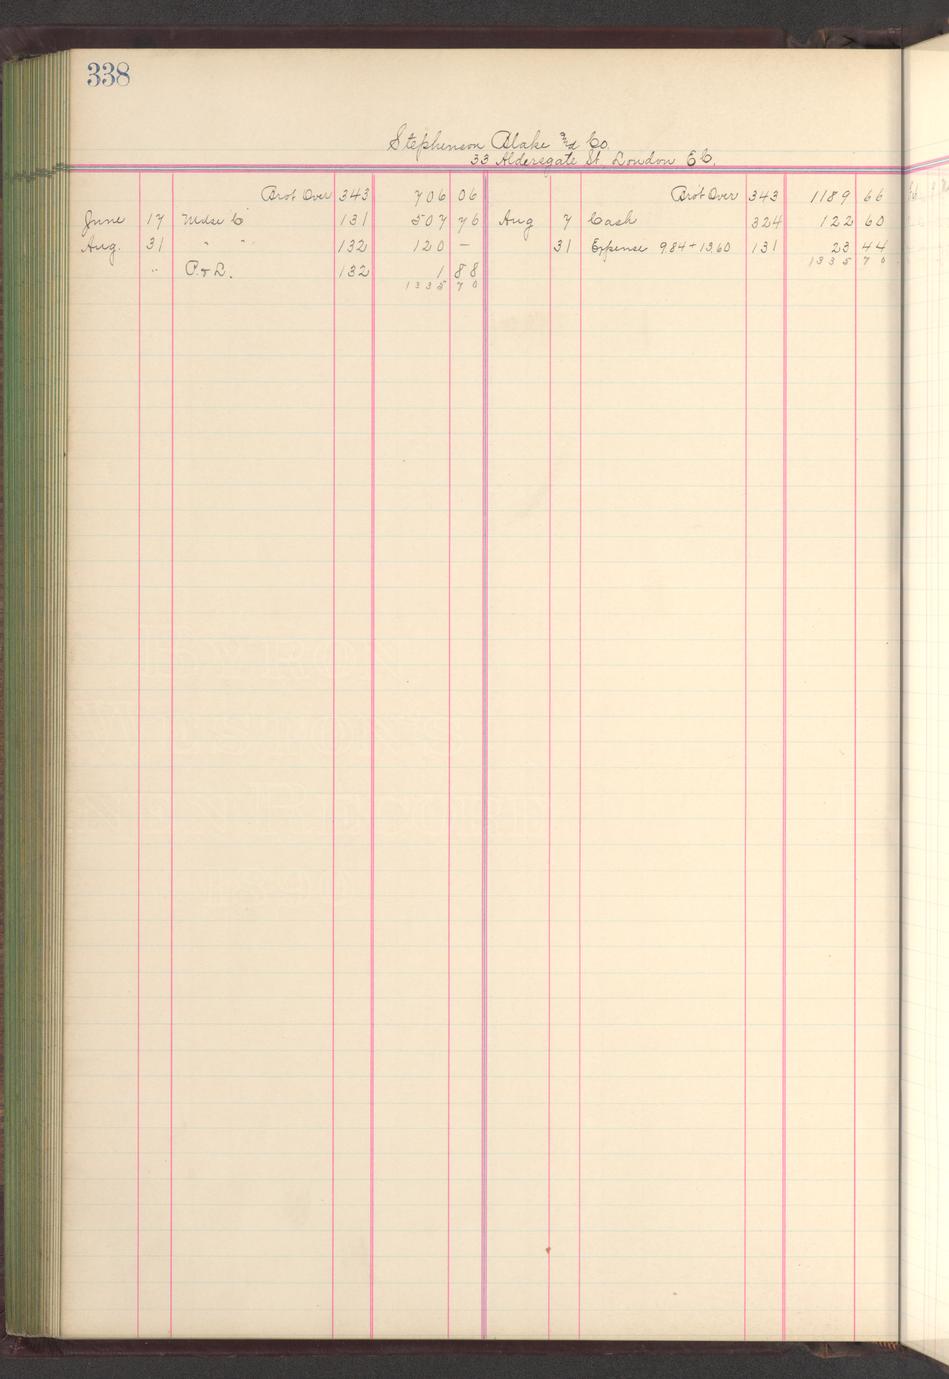 338
Stephenson Blake and Co.
33 Aldersgate St. London E C.
Brot Over 343 706 06 Brot Over 343 1189 66
June 17 Mdse C 131 507 76 Aug 7 Cash 324 122 60
Aug. 31 " " 132 120 — 31 Expense 9.84 + 13.60 131 23 44
1335 70
" P. & L. 132 1 88
1335 70
BYRON
WESTON'S
RECORD
1890